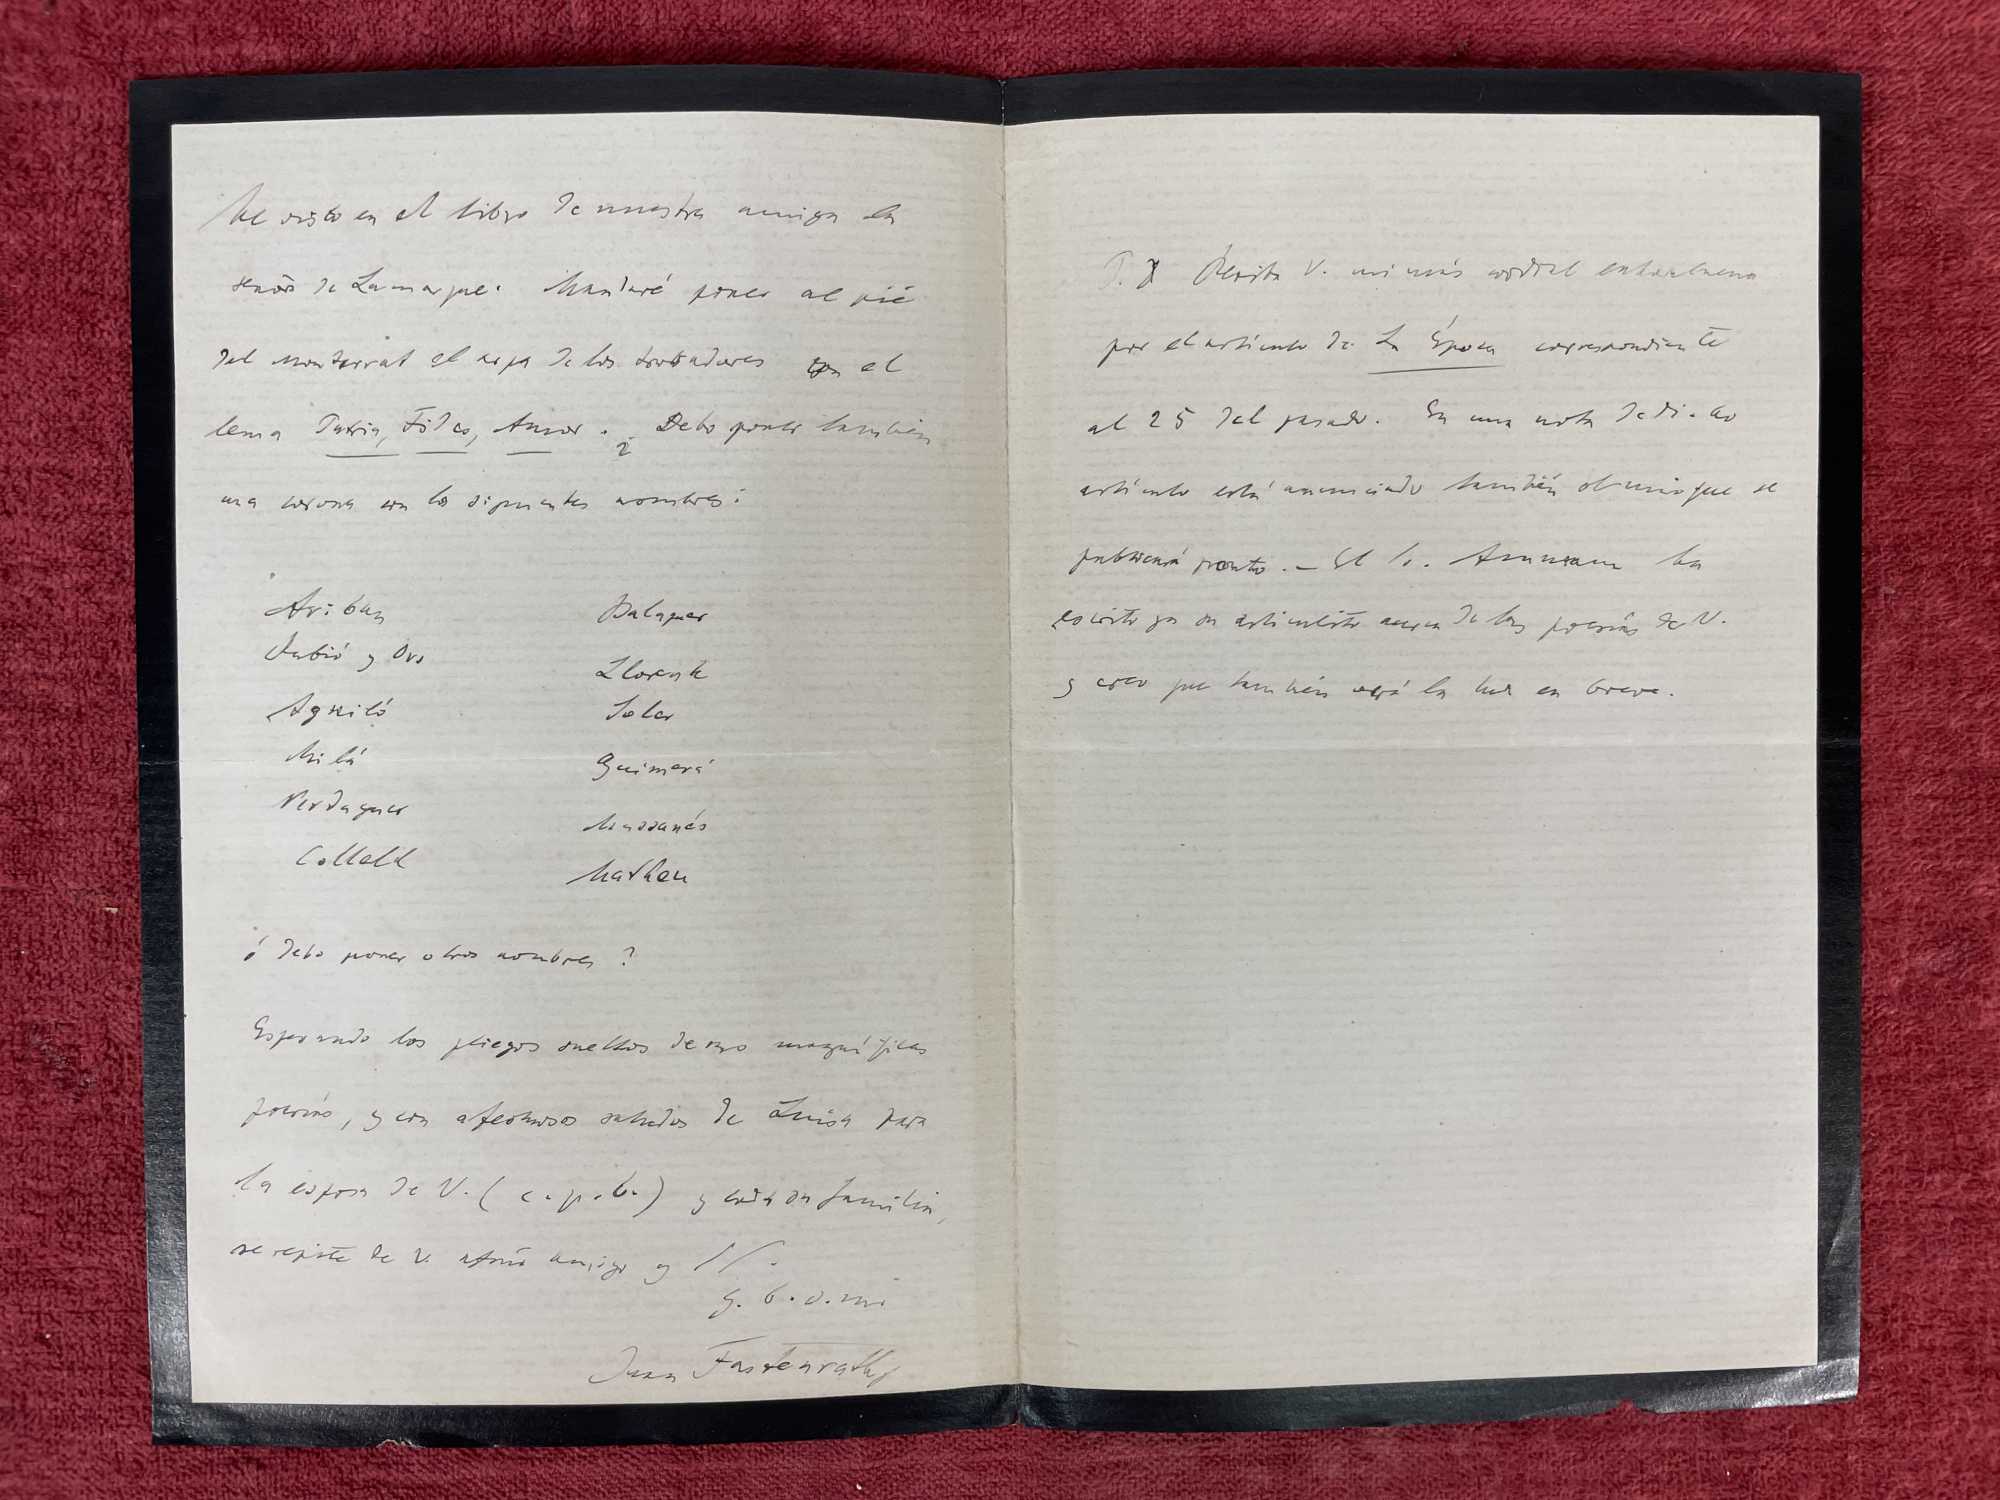 he visto en el libro de nuestra amiga la
señora de Lamarque. Mandaré poner al pié
del Montserrat el arpa de los trovadores con el
lema Patria, Fides, Amor. ¿Debo poner también
una corona con los siguientes nombres:
Aribau
Rubió y Ors
Aguiló
Milá
Verdaguer
Collell
Balaguer
Llorente
Soler
Guimerá
Massanés
Matheu
ó debo poner otros nombres?
Esperando los pliegos sueltos de sus magníficas
poesías, y con afectuosos saludos de Luisa para
la esposa de V. (c. p. b.) y toda su familia,
se repite de V. afmo amigo y S. S.
q. b. s. m.
Juan Fastenrath
P. Reciba V. mi más cordial enhorabuena
por el artículo de La Época correspondiente
al 25 del pasado. En una nota de dicho
artículo está anunciado también el mio que se
publicará pronto. — El S. ha
escrito ya un articulito acerca de las poesías de V.
y creo que también verá la luz en breve.